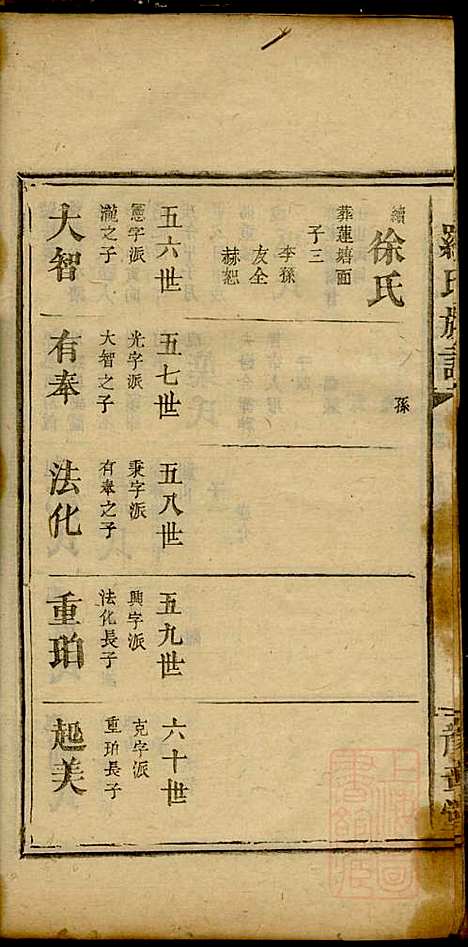 羅氏族譜
豫章堂
續 徐氏
葬蓮塘面
子三
李孫
友全
赫恕
孫
五六世
憲字派
瀧之子
大智
五七世
光字派
大智之子
有奉
五八世
秉字派
有奉之子
法化
五九世
興字派
法化長子
重珀
六十世
克字派
重珀長子
起美